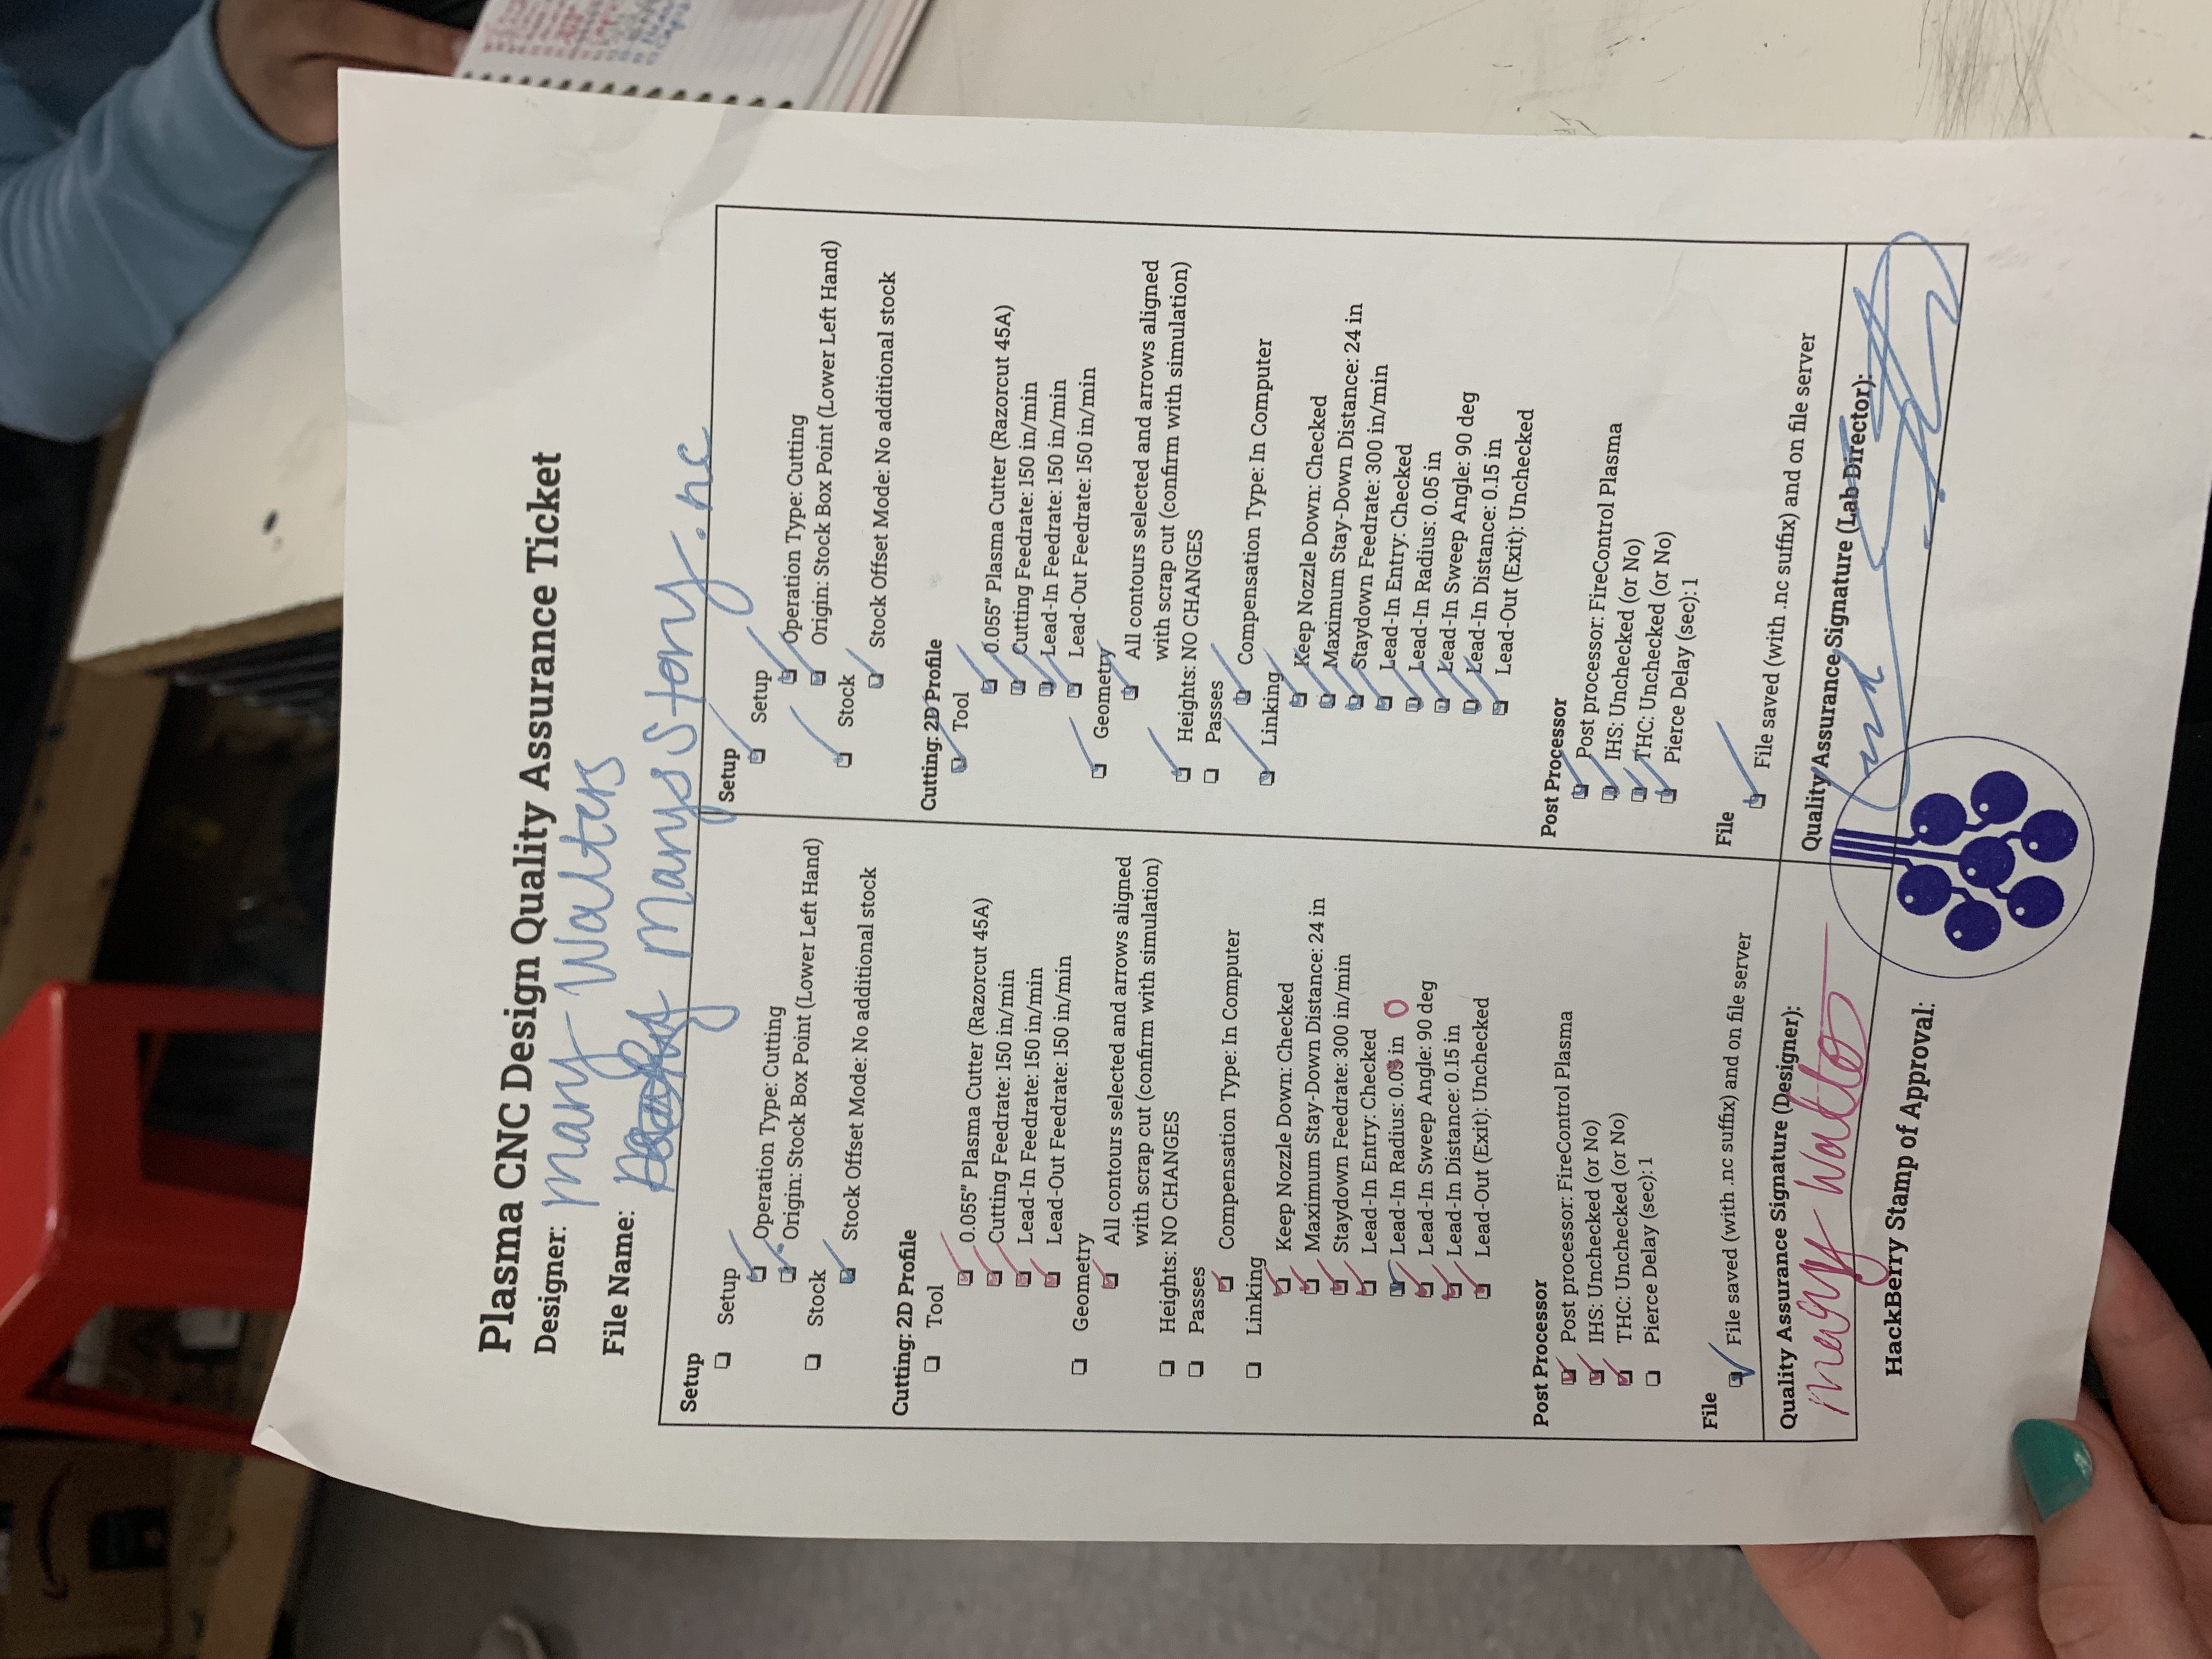 Plasma CNC Design Quality Assurance Ticket
Designer: Mary Walters
File Name: MarysStory.nc
Setup
Setup
Operation Type: Cutting
Origin: Stock Box Point (Lower Left Hand)
Stock
Stock Offset Mode: No additional stock
Cutting: 2D Profile
Tool
0.055" Plasma Cutter (Razorcut 45A)
Cutting Feedrate: 150 in/min
Lead-In Feedrate: 150 in/min
Lead-Out Feedrate: 150 in/min
Geometry
All contours selected and arrows aligned
with scrap cut (confirm with simulation)
Heights: NO CHANGES
Passes
Compensation Type: In Computer
Linking
Keep Nozzle Down: Checked
Maximum Stay-Down Distance: 24 in
Staydown Feedrate: 300 in/min
Lead-In Entry: Checked
Lead-In Radius: 0.05 in 0
Lead-In Sweep Angle: 90 deg
Lead-In Distance: 0.15 in
Lead-Out (Exit): Unchecked
Post Processor
Post processor: FireControl Plasma
IHS: Unchecked (or No)
THC: Unchecked (or No)
Pierce Delay (sec): 1
File
File saved (with .nc suffix) and on file server
Quality Assurance Signature (Designer):
Mary Walters
Setup
Setup
Operation Type: Cutting
Origin: Stock Box Point (Lower Left Hand)
Stock
Stock Offset Mode: No additional stock
Cutting: 2D Profile
Tool
0.055" Plasma Cutter (Razorcut 45A)
Cutting Feedrate: 150 in/min
Lead-In Feedrate: 150 in/min
Lead-Out Feedrate: 150 in/min
Geometry
All contours selected and arrows aligned
with scrap cut (confirm with simulation)
Heights: NO CHANGES
Passes
Compensation Type: In Computer
Linking
Keep Nozzle Down: Checked
Maximum Stay-Down Distance: 24 in
Staydown Feedrate: 300 in/min
Lead-In Entry: Checked
Lead-In Radius: 0.05 in
Lead-In Sweep Angle: 90 deg
Lead-In Distance: 0.15 in
Lead-Out (Exit): Unchecked
Post Processor
Post processor: FireControl Plasma
IHS: Unchecked (or No)
THC: Unchecked (or No)
Pierce Delay (sec): 1
File
File saved (with .nc suffix) and on file server
Quality Assurance Signature (Lab Director):
HackBerry Stamp of Approval: